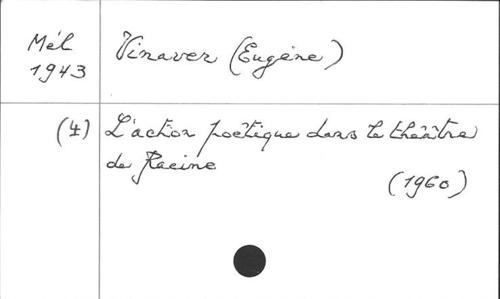 Mél
1943
Vinaver (Eugène)
(4)
L'action poëtique dans le théâtre
de Racine
(1960)